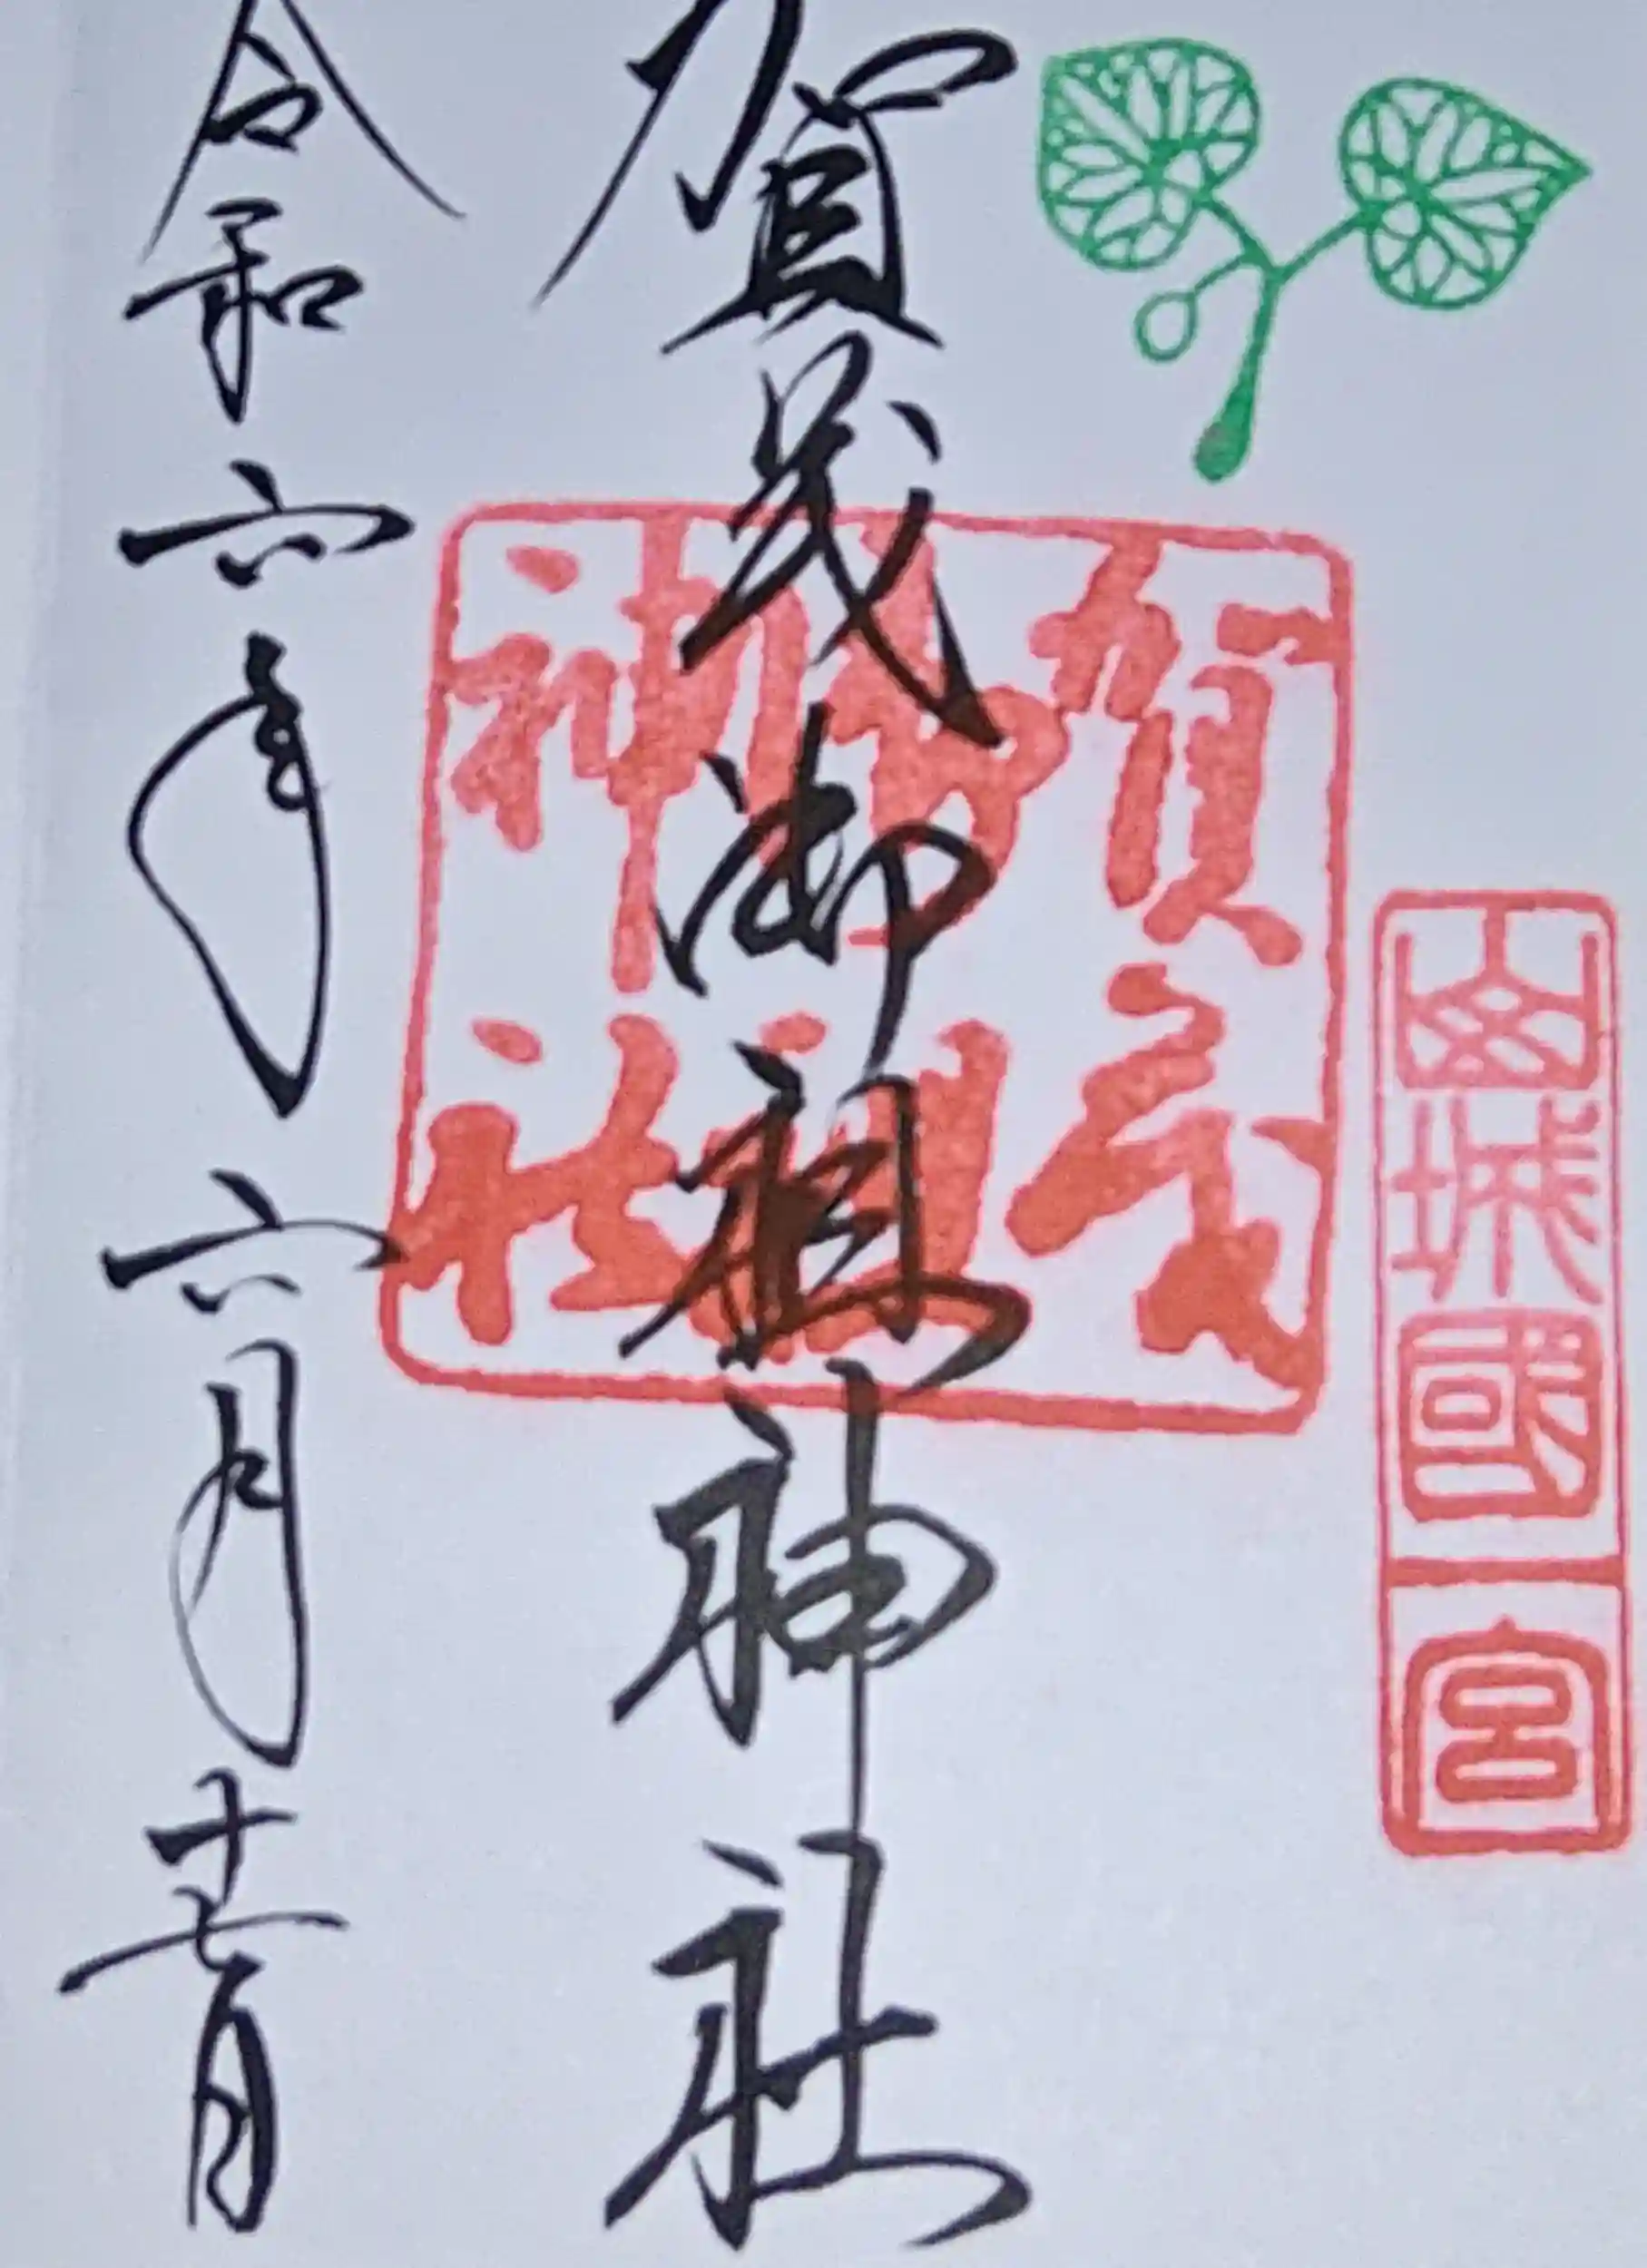 山城國一宮
賀茂御祖神社
賀茂御祖神社
令和六年六月十七日